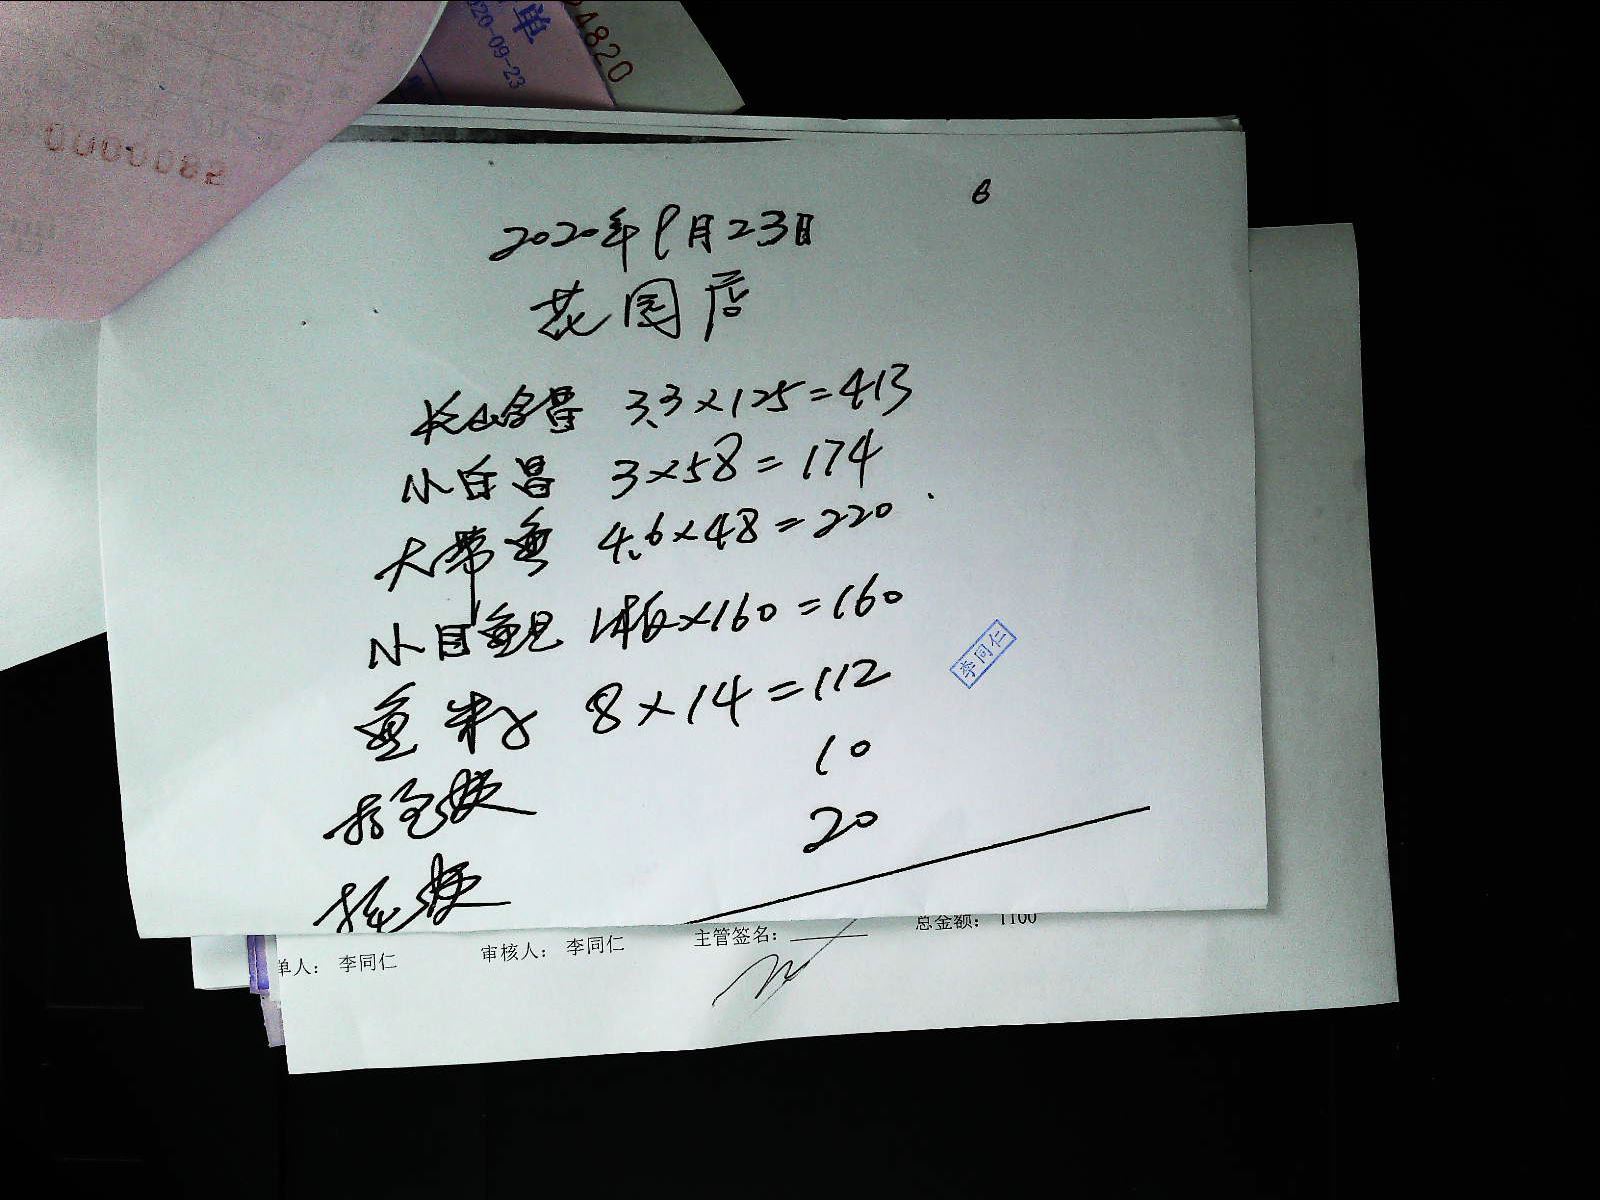 单
2020-09-23
24820
0000088
6
2020年9月23日
花园店
长山仓昌 3.3×125=413
小白昌 3×58=174
大带鱼 4.6×48=220
小目鱼 1板×160=160
鱼籽 8×14=112
打包费 10
拖费 20
李同仁
单人: 李同仁 审核人: 李同仁 主管签名: 总金额: 1100